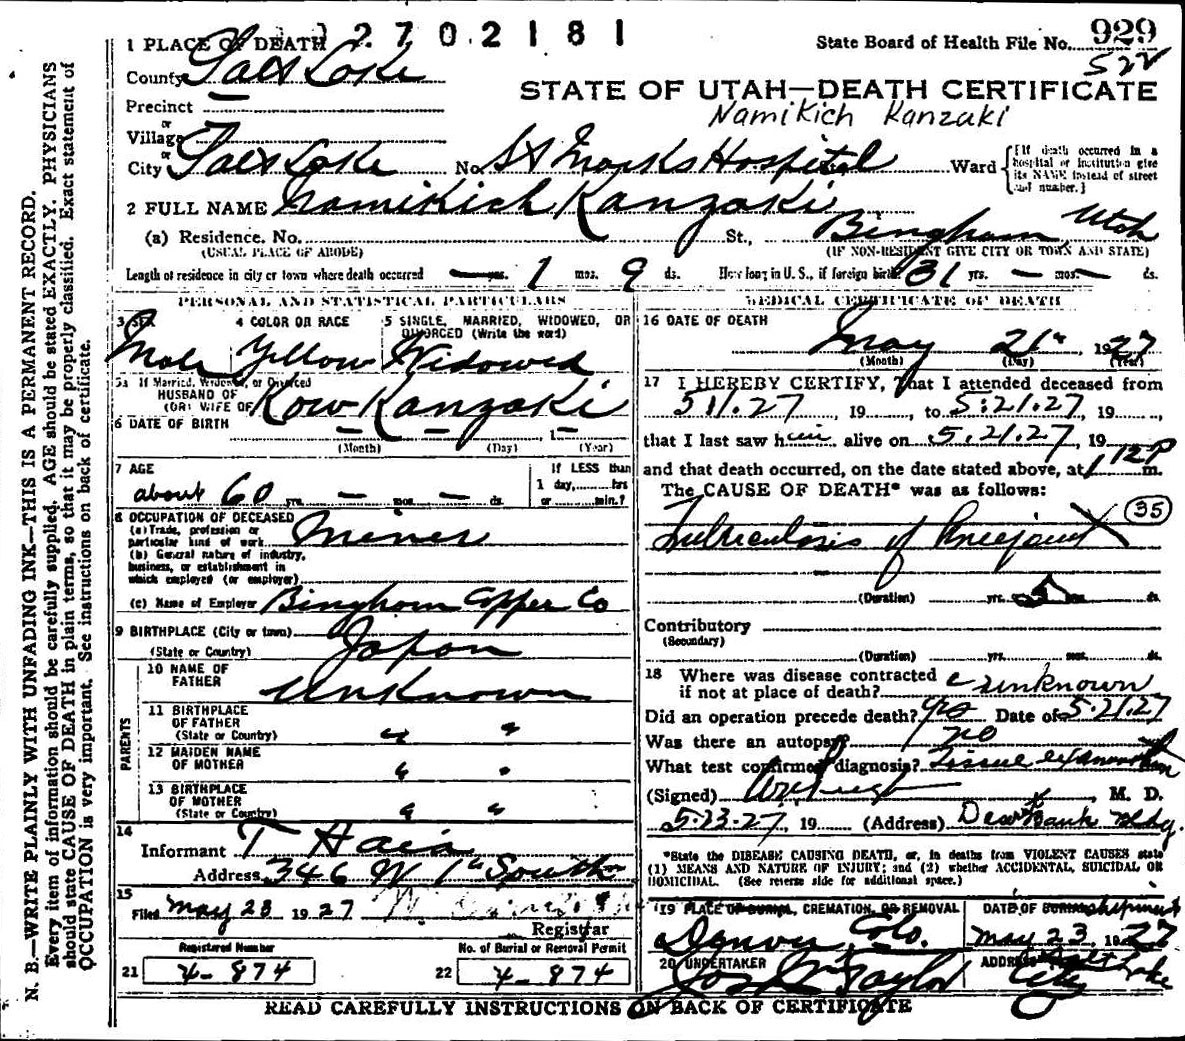 2702181
929
State Board of Health File No.
522
1 PLACE OF DEATH
County Salt Lake
STATE OF UTAH—DEATH CERTIFICATE
Precinct
Namikich Kanzaki
or
Village
or
City Salt Lake No. St Marks Hospital Ward
[If death occurred in a hospital or institution give its NAME instead of street and number.]
2 FULL NAME Namikich Kanzaki
(a) Residence. No. St., Bingham, Utah
(USUAL PLACE OF ABODE) (IF NON-RESIDENT GIVE CITY OR TOWN AND STATE)
Length of residence in city or town where death occurred — yrs. 1 mos. 9 ds. How long in U. S., if foreign birth 31 yrs. — mos. — ds.
PERSONAL AND STATISTICAL PARTICULARS
3 SEX 4 COLOR OR RACE 5 SINGLE, MARRIED, WIDOWED, OR DIVORCED (Write the word)
Male Yellow Widowed
5a If Married, Widowed, or Divorced
HUSBAND OF
(OR) WIFE OF Kow Kanzaki
6 DATE OF BIRTH — — 1—
(Month) (Day) (Year)
7 AGE If LESS than
1 day, hrs
about 60 yrs. — mos. — ds. or min.?
8 OCCUPATION OF DECEASED
(a) Trade, profession or
particular kind of work Miner
(b) General nature of industry,
business, or establishment in
which employed (or employer)
(c) Name of Employer Bingham Copper Co
9 BIRTHPLACE (City or town)
(State or Country) Japan
PARENTS
10 NAME OF
FATHER Unknown
11 BIRTHPLACE
OF FATHER
(State or Country) " "
12 MAIDEN NAME
OF MOTHER " "
13 BIRTHPLACE
OF MOTHER
(State or Country) " "
14
Informant T
Address 346 W 1st South
15
Filed May 23 1927
Registrar
Registered Number No. of Burial or Removal Permit
21 4-874 22 4-874
MEDICAL CERTIFICATE OF DEATH
16 DATE OF DEATH
May 21st, 1927
(Month) (Day) (Year)
17 I HEREBY CERTIFY, That I attended deceased from
5.11.27, 19, to 5.21.27, 19,
that I last saw him alive on 5.21.27, 19
and that death occurred, on the date stated above, at 1,12P m.
The CAUSE OF DEATH* was as follows:
35
Tuberculosis of Kneejoint
(Duration) yrs. mos. ds.
Contributory
(Secondary)
(Duration) yrs. mos. ds.
18 Where was disease contracted
if not at place of death? unknown
Did an operation precede death? yes Date of 5.21.27
Was there an autopsy? no
What test confirmed diagnosis? Tissue examination
(Signed) , M. D.
5.23.27, 19 (Address) Bank Bldg.
*State the DISEASE CAUSING DEATH, or, in deaths from VIOLENT CAUSES state
(1) MEANS AND NATURE OF INJURY; and (2) whether ACCIDENTAL, SUICIDAL OR
HOMICIDAL. (See reverse side for additional space.)
19 PLACE OF BURIAL, CREMATION, OR REMOVAL DATE OF BURIAL shipment
Denver, Colo. May 23 1927
20 UNDERTAKER ADDRESS Salt Lake
Jos Wm Taylor City
READ CAREFULLY INSTRUCTIONS ON BACK OF CERTIFICATE
N. B.—WRITE PLAINLY WITH UNFADING INK—THIS IS A PERMANENT RECORD.
Every item of information should be carefully supplied. AGE should be stated EXACTLY. PHYSICIANS
should state CAUSE OF DEATH in plain terms, so that it may be properly classified. Exact statement of
OCCUPATION is very important. See instructions on back of certificate.